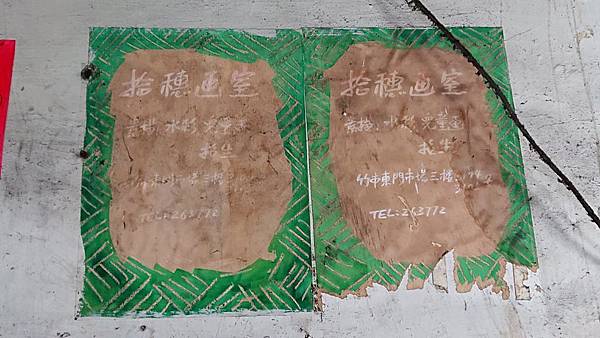 拾穗画室
素描.水彩.兒童画
招生
竹市東門市場三樓
TEL:263772
拾穗画室
素描.水彩.兒童画
招生
竹市東門市場三樓
TEL:263772